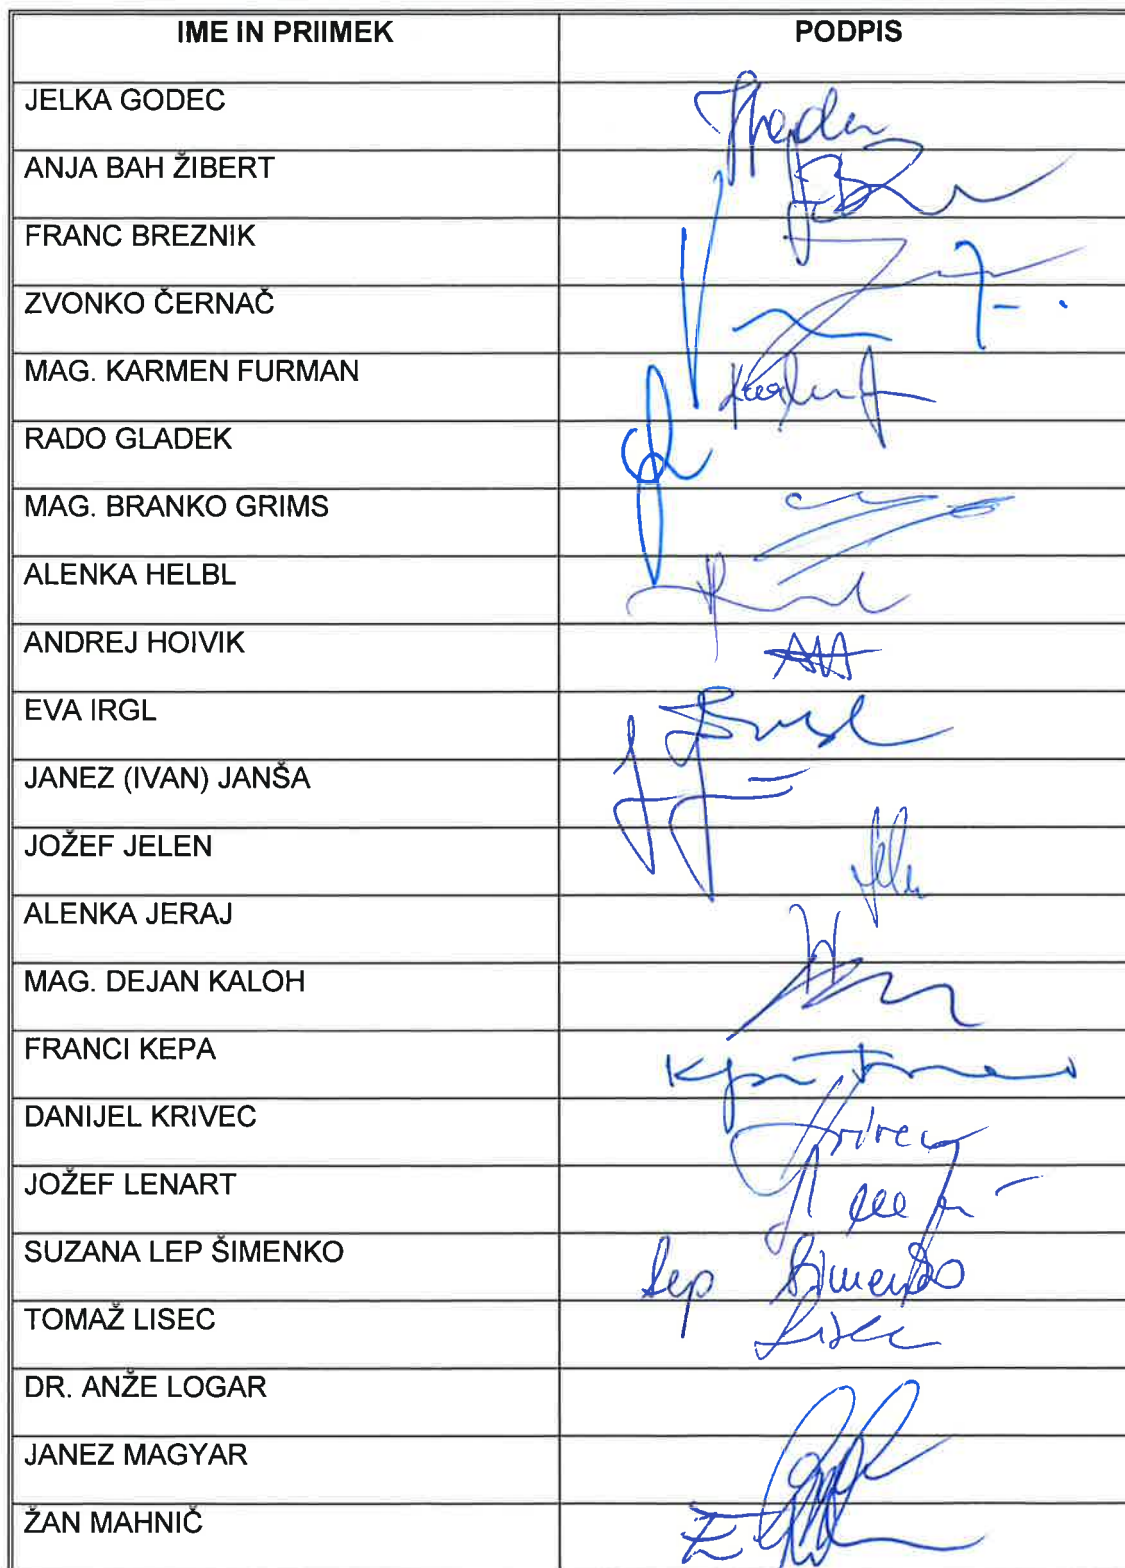 IME IN PRIIMEK PODPIS
JELKA GODEC
ANJA BAH ŽIBERT
FRANC BREZNIK
ZVONKO ČERNAČ
MAG. KARMEN FURMAN
RADO GLADEK
MAG. BRANKO GRIMS
ALENKA HELBL
ANDREJ HOIVIK
EVA IRGL
JANEZ (IVAN) JANŠA
JOŽEF JELEN
ALENKA JERAJ
MAG. DEJAN KALOH
FRANCI KEPA
DANIJEL KRIVEC Krivec
JOŽEF LENART
SUZANA LEP ŠIMENKO Lep Šimenko
TOMAŽ LISEC Lisec
DR. ANŽE LOGAR
JANEZ MAGYAR
ŽAN MAHNIČ